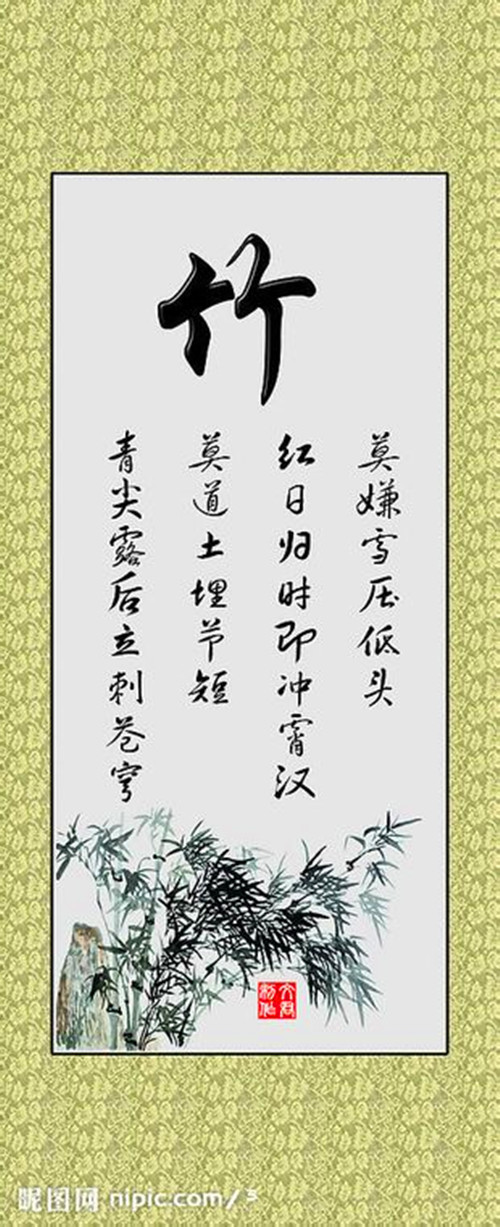 竹
莫嫌雪压低头
红日归时即冲霄汉
莫道土埋节短
青尖露后立刺苍穹
昵图网 nipic.com/